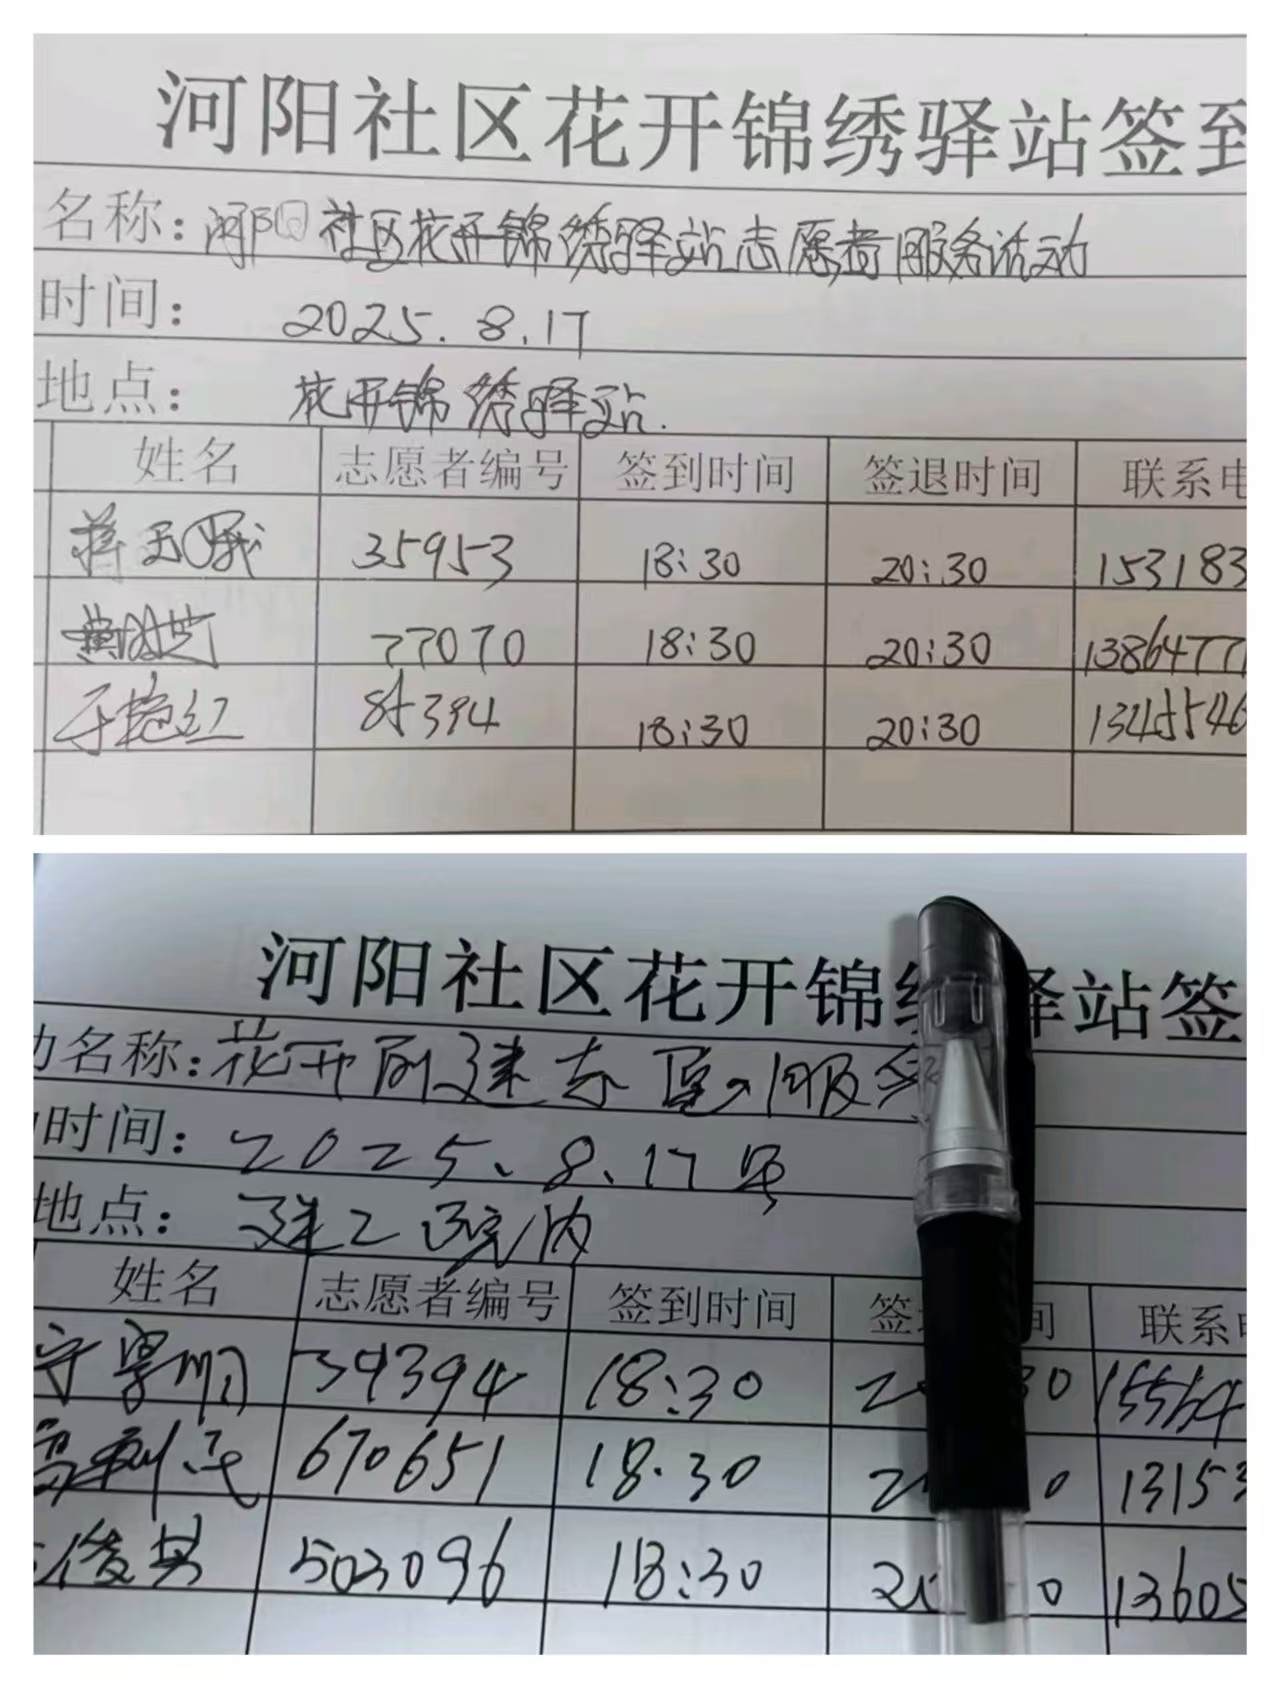 河阳社区花开锦绣驿站签到
名称：河阳社区花开锦绣驿站志愿者服务活动
时间： 2025.8.17
地点： 花开锦绣驿站.
姓名 志愿者编号 签到时间 签退时间 联系电
蒋天娥 35953 18:30 20:30 153183
77070 18:30 20:30 1386477
于艳红 85394 18:30 20:30 1345546
河阳社区花开锦绣驿站签
名称：花开
时间：2025、8、17号
地点： 建工医院内
姓名 志愿者编号 签到时间 签 间 联系
39394 18:30 2 30 15564
670651 18.30 2 0 13153
503096 18:30 2 0 13605